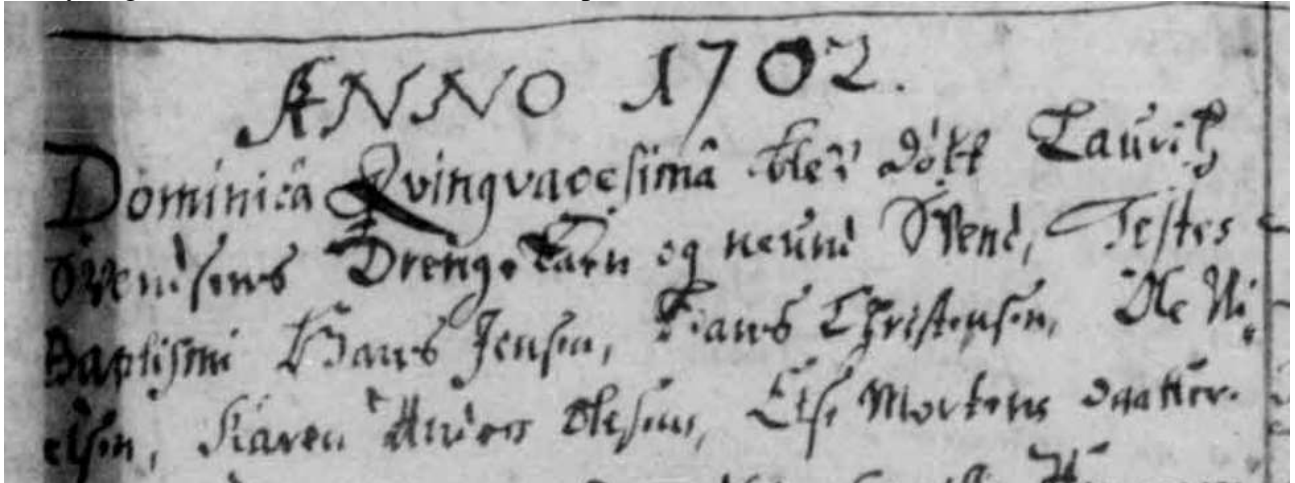 ANNO 1702.
Dominicâ Qvinqvagesimâ bleŭ döbt Lauritz
Svendsens Drenge Barn og neund Svend, Testes
Baptismi Hans Jensen, Hans Christensen, Ole Ni
elsen, Karen Anders Olesens, Else Mortens daatter.